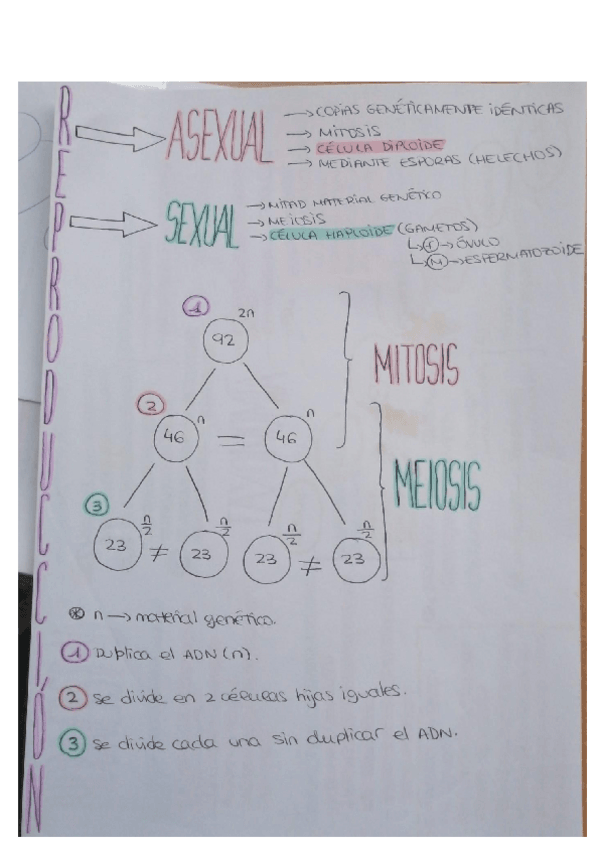 REPRODUCCIÓN
ASEXUAL
→ COPIAS GENÉTICAMENTE IDÉNTICAS
→ MITOSIS
→ CÉLULA DIPLOIDE
→ MEDIANTE ESPORAS (HELECHOS)
SEXUAL
→ MITAD MATERIAL GENÉTICO
→ MEIOSIS
→ CÉLULA HAPLOIDE (GAMETOS)
F → ÓVULO
M → ESPERMATOZOIDE
1 2n
92
MITOSIS
2 n n
46 = 46
MEIOSIS
3 n/2 n/2 n/2 n/2
23 ≠ 23 23 ≠ 23
* n → material genético.
1 Duplica el ADN (n).
2 Se divide en 2 células hijas iguales.
3 Se divide cada una sin duplicar el ADN.